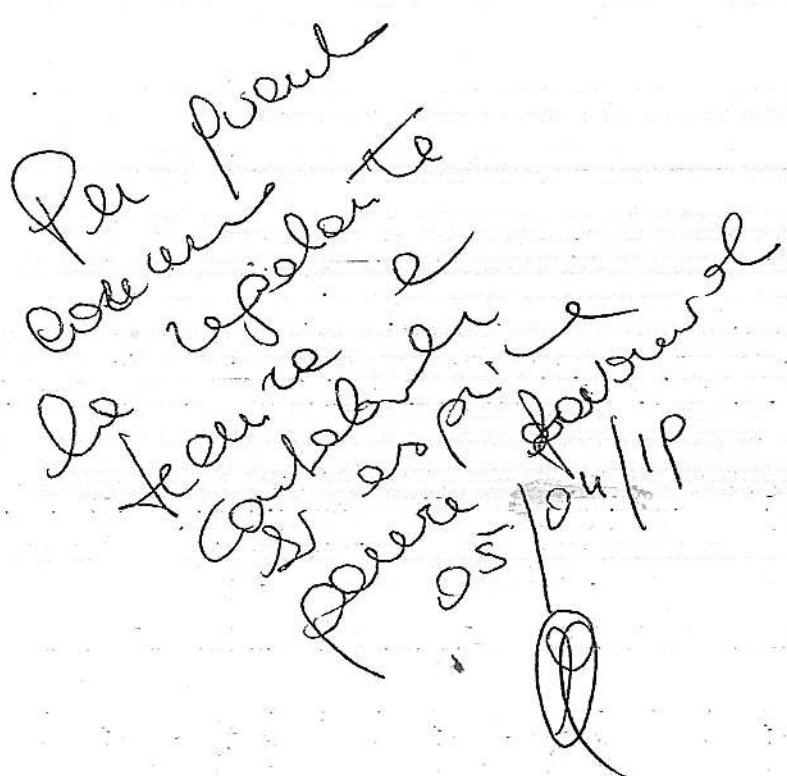 Per quanto
concerne
la regolarità
tecnica e
contabile
si esprime
parere favorevole
05/04/18